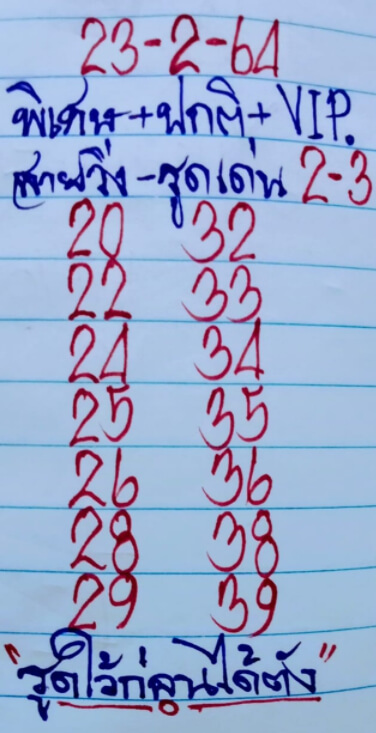 23-2-64
พิเศษ+ปกติ+ VIP.
สายวิ่ง-รูดเด่น 2-3
20 32
22 33
24 34
25 35
26 36
28 38
29 39
"รูดไว้ก่อนได้ตัง"